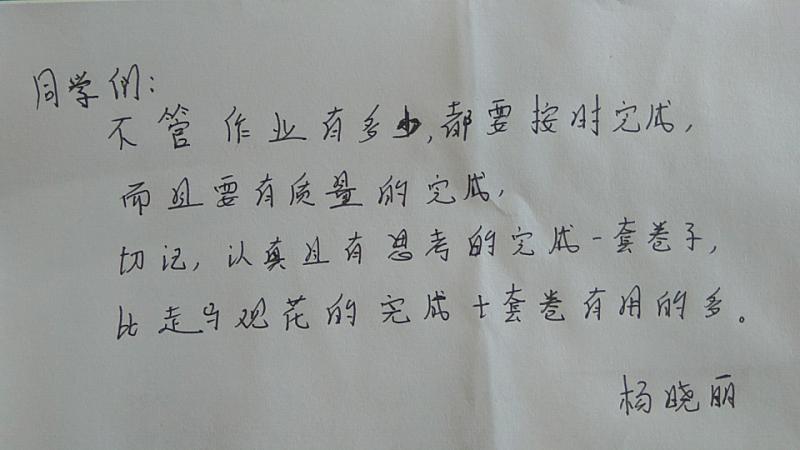 同学们:
不管作业有多少,都要按时完成,
而且要有质量的完成,
切记,认真且有思考的完成一套卷子,
比走马观花的完成十套卷有用的多。
杨晓丽